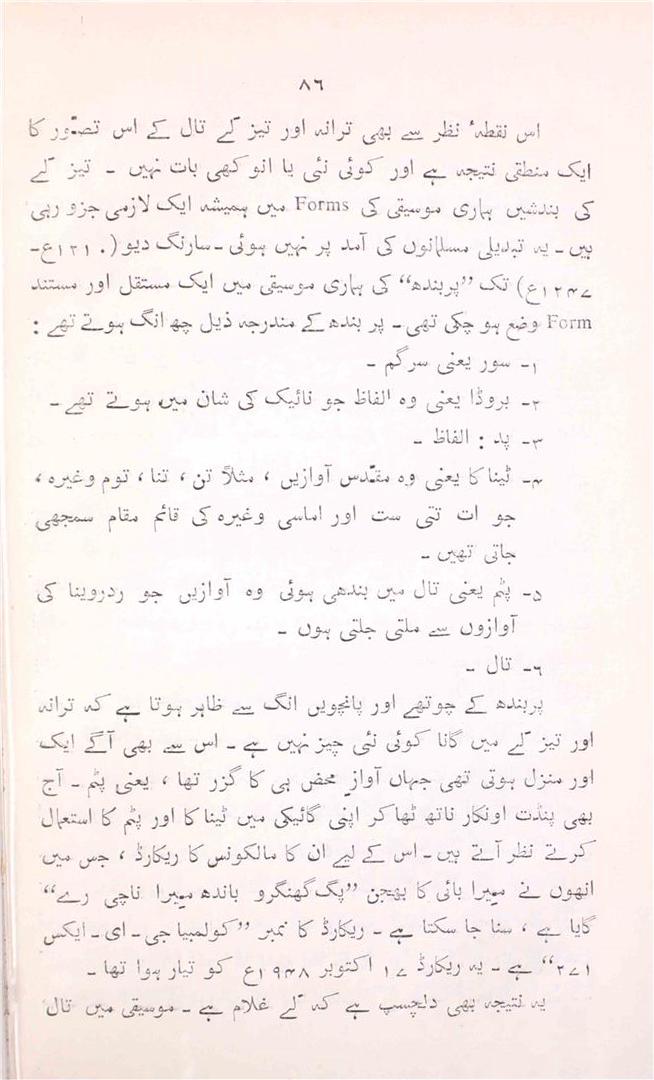 ۸٦
اس نقطہٴ نظر سے بھی ترانہ اور تیز لَے تال کے اس تصوّر کا
ایک منطقی نتیجہ ہے اور کوئی نئی یا انوکھی بات نہیں ۔ تیز لَے
کی بندشیں ہماری موسیقی کی Forms میں ہمیشہ ایک لازمی جزو رہی
ہیں ۔ یہ تبدیلی مسلمانوں کی آمد پر نہیں ہوئی ۔ سارنگ دیو (۱۲۱۰ع۔
۱۲۴۷ع) تک ”پربندھ“ کی ہماری موسیقی میں ایک مستقل اور مستند
Form وضع ہو چکی تھی ۔ پربندھ کے مندرجہ ذیل چھ انگ ہوتے تھے :
۱۔ سور یعنی سرگم ۔
۲۔ بروڈا یعنی وہ الفاظ جو نائیک کی شان میں ہوتے تھے ۔
۳۔ پد : الفاظ ۔
۴۔ ٹینا کا یعنی وہ مقدّس آوازیں ، مثلاً تن ، تنا ، توم وغیرہ ،
جو ات تتی ست اور اماسی وغیرہ کی قائم مقام سمجھی
جاتی تھیں ۔
۵۔ پٹم یعنی تال میں بندھی ہوئی وہ آوازیں جو ردروینا کی
آوازوں سے ملتی جلتی ہوں ۔
٦۔ تال ۔
پربندھ کے چوتھے اور پانچویں انگ سے ظاہر ہوتا ہے کہ ترانہ
اور تیز لَے میں گانا کوئی نئی چیز نہیں ہے ۔ اس سے بھی آگے ایک
اور منزل ہوتی تھی جہاں آوازِ محض ہی کا گزر تھا ، یعنی پٹم ۔ آج
بھی پنڈت اونکار ناتھ ٹھاکر اپنی گائیکی میں ٹینا کا اور پٹم کا استعمال
کرتے نظر آتے ہیں ۔ اس کے لیے ان کا مالکونس کا ریکارڈ ، جس میں
انھوں نے میرا بائی کا بھجن ”پگ گھنگرو باندھ میرا ناچی رے“
گایا ہے ، سنا جا سکتا ہے ۔ ریکارڈ کا نمبر ”کولمبیا جی ۔ ای ۔ ایکس
۲۷۱“ ہے ۔ یہ ریکارڈ ۱۷ اکتوبر ۱۹۴۸ع کو تیار ہوا تھا ۔
یہ نتیجہ بھی دلچسپ ہے کہ لَے غلام ہے ۔ موسیقی میں تال